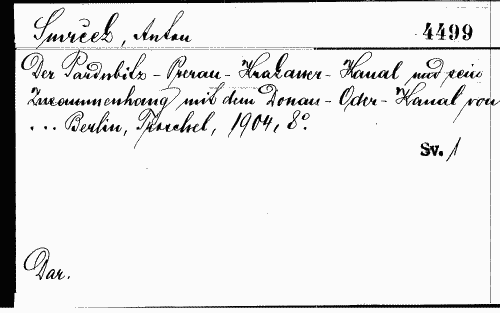 Smrček, Anton
4499
Der Pardubitz-Prerau-Krakauer-Kanal und sein
Zusammenhang mit dem Donau-Oder-Kanal von
... Berlin, Troschel, 1904, 8°.
Sv. 1
Dar.